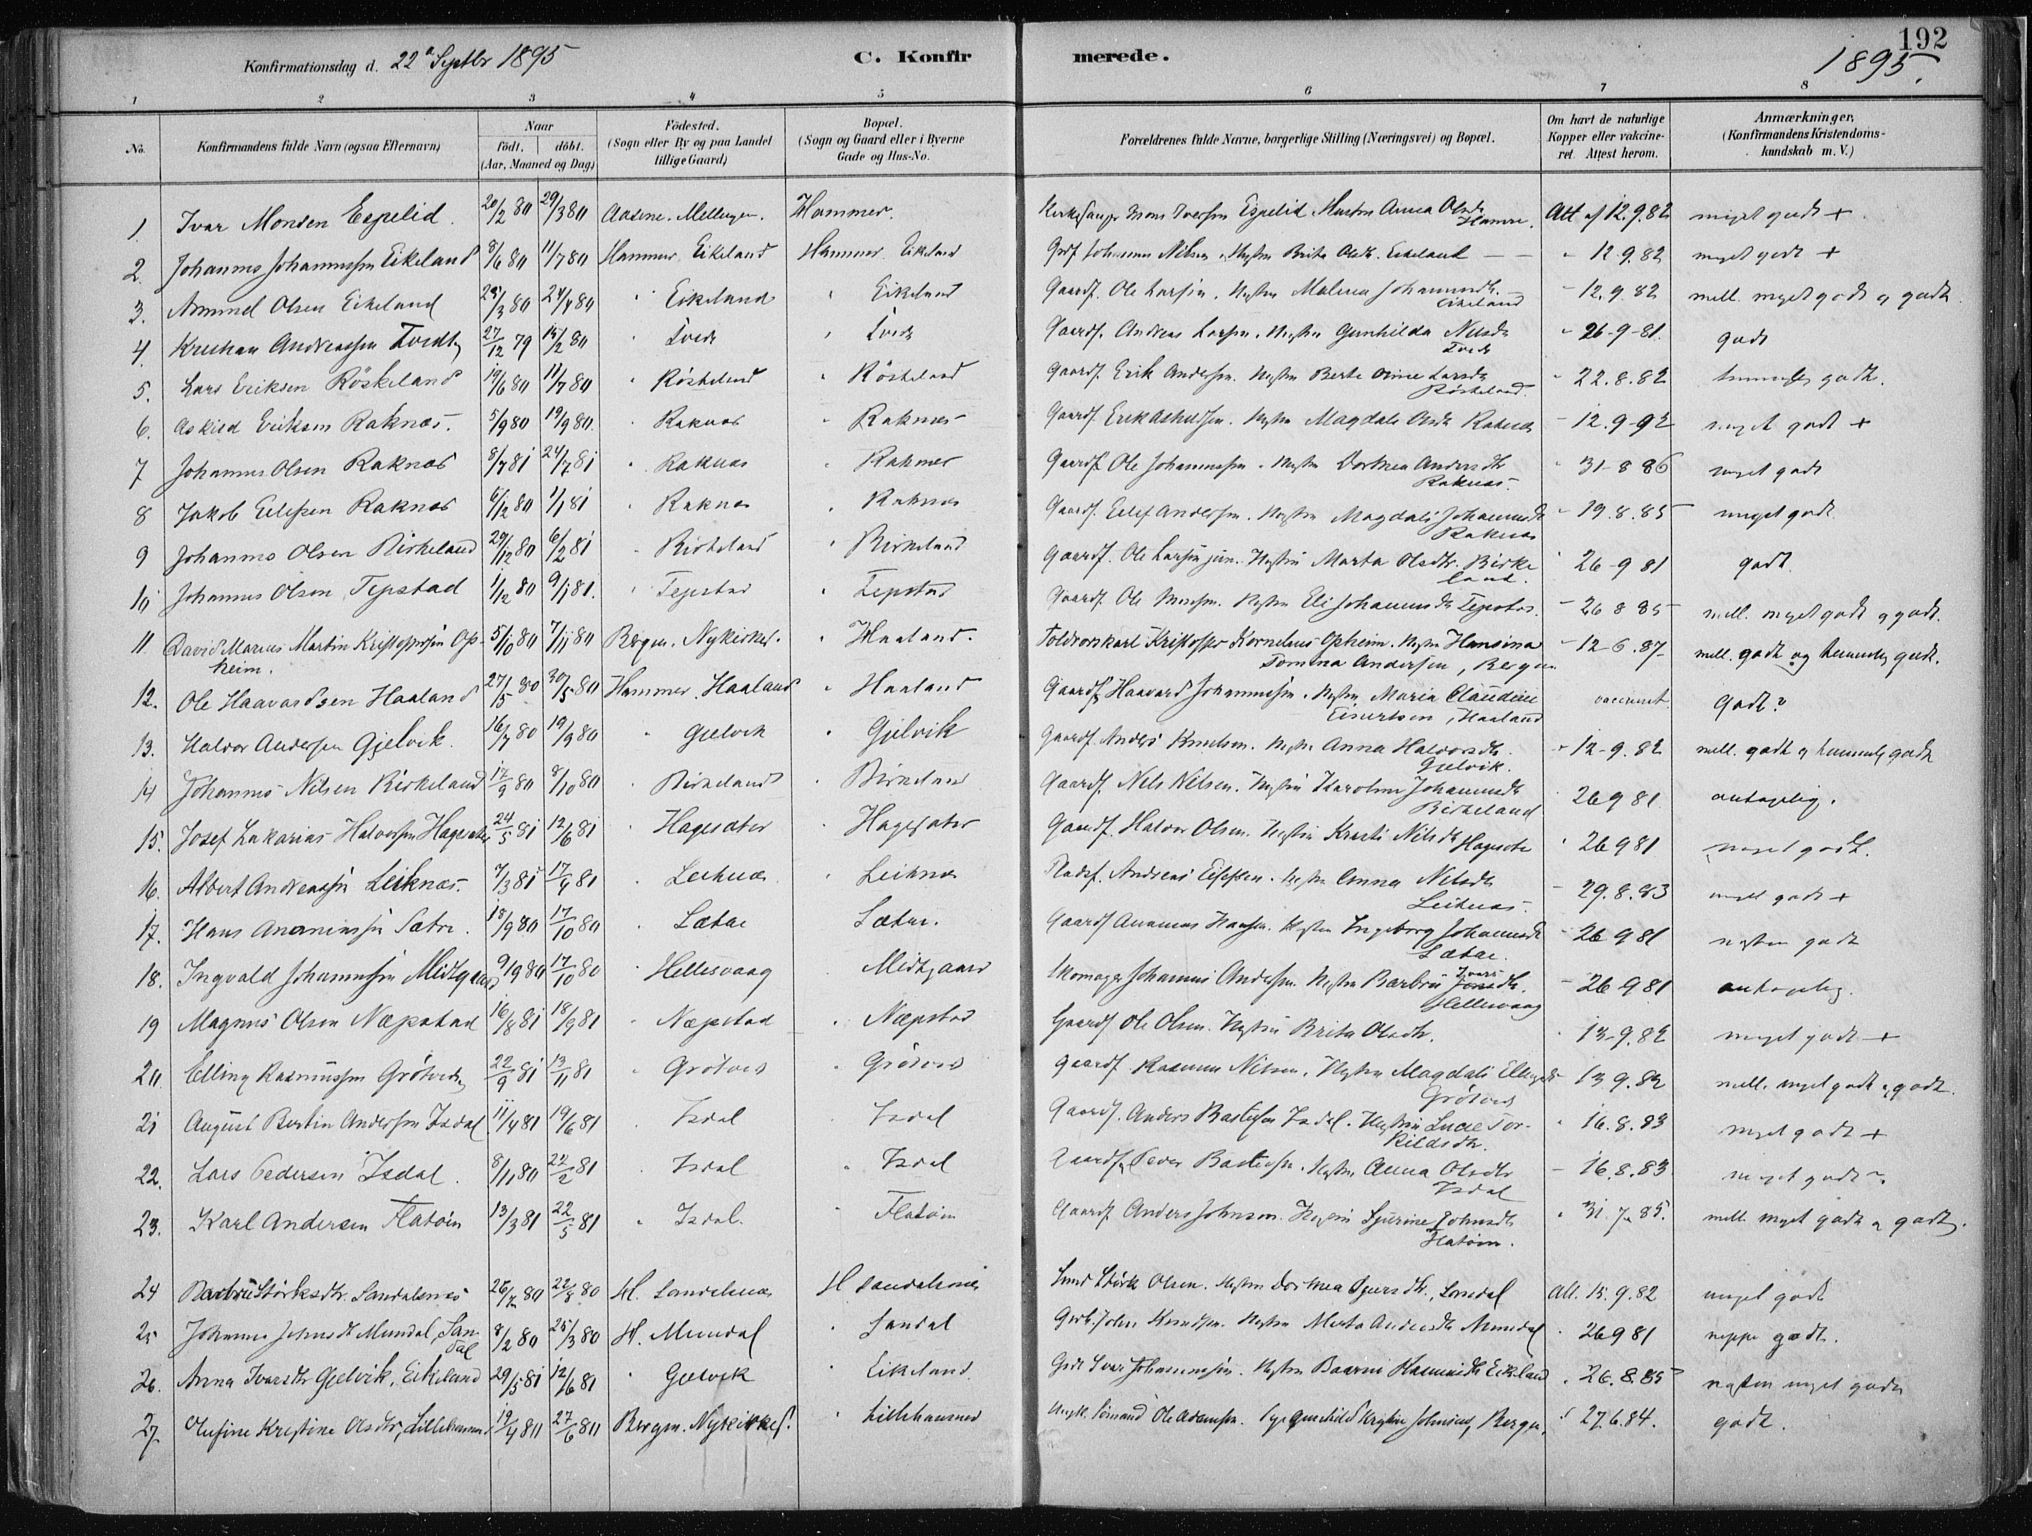 192
Konfirmationsdag d. 22a Septbr 1895
C. Konfirmerede.
1895.
1 2 3 4 5 6 7 8
No.
Konfirmandens fulde Navn (ogsaa Efternavn)
Naar
født. døbt.
(Aar, Maaned og Dag)
Fødested.
(Sogn eller By og paa Landet
tillige Gaard)
Bopæl.
(Sogn og Gaard eller i Byerne
Gade og Hus-No.
Forældrenes fulde Navne, borgerlige Stilling (Næringsvei) og Bopæl.
Om havt de naturlige
Kopper eller vakcine-
ret. Attest herom.
Anmærkninger,
(Konfirmandens Kristendoms-
kundskab m. V.)
1. Ivar Monsen Espelid. 20/2 80 29/3 80 Aasene. Mellingen. Hammer. Kirkesanger Mons Iversen Espelid Hustru Anna Olsdtr Hamre. Att af 12.9.82 meget godt +
2. Johannes Johannessen Eikeland 8/6 80 11/7 80 Hammer. Eikeland Hammer. Eikeland Johannes Nilsen. Hustru Brita Olsdtr. Eikeland " 12 9.82 meget godt +
3. Ammel Olsen Eikeland 24/4 80 " Eikeland " Eikeland Gaardf. Ole Larsen. Hustru Malena Johannesdtr. Eikeland - 12.9.82 mell. meget godt og godt.
4. Andreassen Tvedt 27/12 79 15/2 80 " Tvedt " Tvedt Gaardf. Andreas Larsen. Hustru Gunhilda Nelsdtr Tvedt - 26-9-81. godt
5. Lars Eriksen Röskeland 19/6 80 11/7 80 " Röskeland " Röskeland Gaardf. Erik Andersen. Hustru Berte Larsdtr Röskeland " 22.8.82 temmelig godt.
6. Askild Eriksen Raknæs. 5/9 80 19/9 80. " Raknæs " Raknæs Gaardf. Erik Askildsen. Hustru Magdali Olsdtr Raknæs - 12.9-92 meget godt +
7 Johannes Olsen Raknæs 8/7 81 24/7 81 " Raknæs " Raknæs Gaardf. Ole Johannessen. Hustru Dorthea Andersdtr Raknæs. " 31-8 86 meget godt
8 Jakob Eilefsen Raknæs 6/12 80 1/1 81 " Raknæs " Raknæs Gaardf. Eilef Andersen. Hustru Magdali Johannesdtr Raknæs - 19.8.85 meget godt
9 Johannes Olsen Birkeland 29/12 80 6/2 81 " Birkeland " Birkeland Gaardf. Ole Larsen jun. Hustru Marta Olsdtr. Birkeland. " 26-9 81 godt.
10 Johannes Olsen Tepstad 1/12 80 9/1 81. " Tepstad " Tepstad Gaardf. Ole Hustru Eli Johannesdtr Tepstad. - 26 8 85 mell. meget godt og godt.
11. David Marius Martin Kristoffersen Opheim. 5/10 80 7/11 80 Bergen. Nykirket. " Haaland. Kristoffer Kornelius Opheim. Hustru Hansina Tomina Andersen, Bergen - 12-6.87 mell. godt og temmelig godt.
12. Ole Haavardsen Haaland 27/5 80 30/5 80 Hammer. Haaland " Haaland Gaardf. Haavard Johannessen. Hustru Maria Claudine Haaland vaccineret. Godt?
13. Halvor Andersen Gjelvik. 16/7 80 19/9 80 " Gjelvik " Gjelvik Gaardf. Anders Knudsen. Hustru Anna Halvorsdtr. Gjelvik. " 12-9.82 mell. godt og temmelig godt
14 Johannes Nilsen Birkeland 17/9 80 8/10 80 " Birkeland " Birkeland Gaardf. Nels Nilsen. Hustru Karolina Johannesdtr Birkeland 26 9 81 antagelig.
15. Josef Zakarias Halvorsen Hagesæter 24/5 81 12/6 81 " Hagesæter " Hagesæter Gaardf. Halvor Olsen. Hustru Kristi Nilsdtr Hagesæter " 26 9 81 meget godt.
16. Albert Andreassen Leiknæs. 7/3 81 17/4 81 " Leiknæs " Leiknæs Pladsf. Andreas Hustru Anna Nelsdtr Leiknæs. - 29.8.83 meget godt +
17. Hans Ananiassen Sætre. 18/9 80 17/10 80 " Sætre " Sætre. Gaardf. Ananias Hansen. Hustru Ingeborg Johannesdtr Sætre. - 26 9 81 næsten godt
18. Ingvald Johannessen Midtgaard 9/9 80 17/10 80 " Hellesvaag " Midtgaard Skomager Johannes Andersen. Hustru Barbru Ivarsdtr. Hellesvaag - 26 9 81 antagelig.
19 Magnus Olsen Næpstad 16/8 81 18/9 81 " Næpstad " Næpstad Gaardf. Ole Olsen. Hustru Brita Olsdtr. " 13-9.82 meget godt +
20. Elling Rasmussen Grötvedt 22/9 81 13/11 81 " Grötvedt " Grötvedt Gaardf. Rasmus Nilsen. Hustru Magdali Ellingsdtr Grötvedt - 13 9.82 mell. meget godt og godt.
21 August Bertin Andersen Isdal 11/4 81 19/6 81 " Isdal " Isdal Gaardf. Anders Bastesen Isdal. Hustru Lucie Torkildsdtr. " 16.8.83 meget godt +
22. Lars Pedersen Isdal. 8/11 80 22/2 81 " Isdal " Isdal Gaardf. Peder Bastesen. Hustru Anna Olsdtr Isdal - 16.8.83 meget godt
23. Karl Andersen Flatöin 13/3 81 22/5 81 " Isdal. " Flatöin Gaardf. Anders Johnsen. Hustru Johnsdtr Flatöin. " 31.7.85. mell. meget godt og godt.
24 Barbru Störksdtr. Sandalsnæs 22/8 80 H. Sandalsnæs H Sandalsnæs Störk Olsen. Hustru Dorthea Sandal Att. 15.9.82 meget godt
25 Johanna Johnsdtr Mundal, Sandal 8/2 80 25/3 80 H. Mundal " Sandal John Knudsen. Hustru Marta Andersdtr Mundal " 26 9 81 neppe godt.
26. Anna Ivarsdtr Gjelvik, Eikeland 29/5 81 12/6 81 " Gjelvik " Eikeland Ivar Johannessen. Hustru Eikeland " 26.8.85 næsten meget godt
27. Olufine Kristine Olsdtr, Lillehammer 19/4 80 27/6 80 Bergen. Nykirket. " Lillehammer Ungk. Sömand Ole Adamsen. Pige Gunhild Kristine Bergen. " 27.6.84. godt.